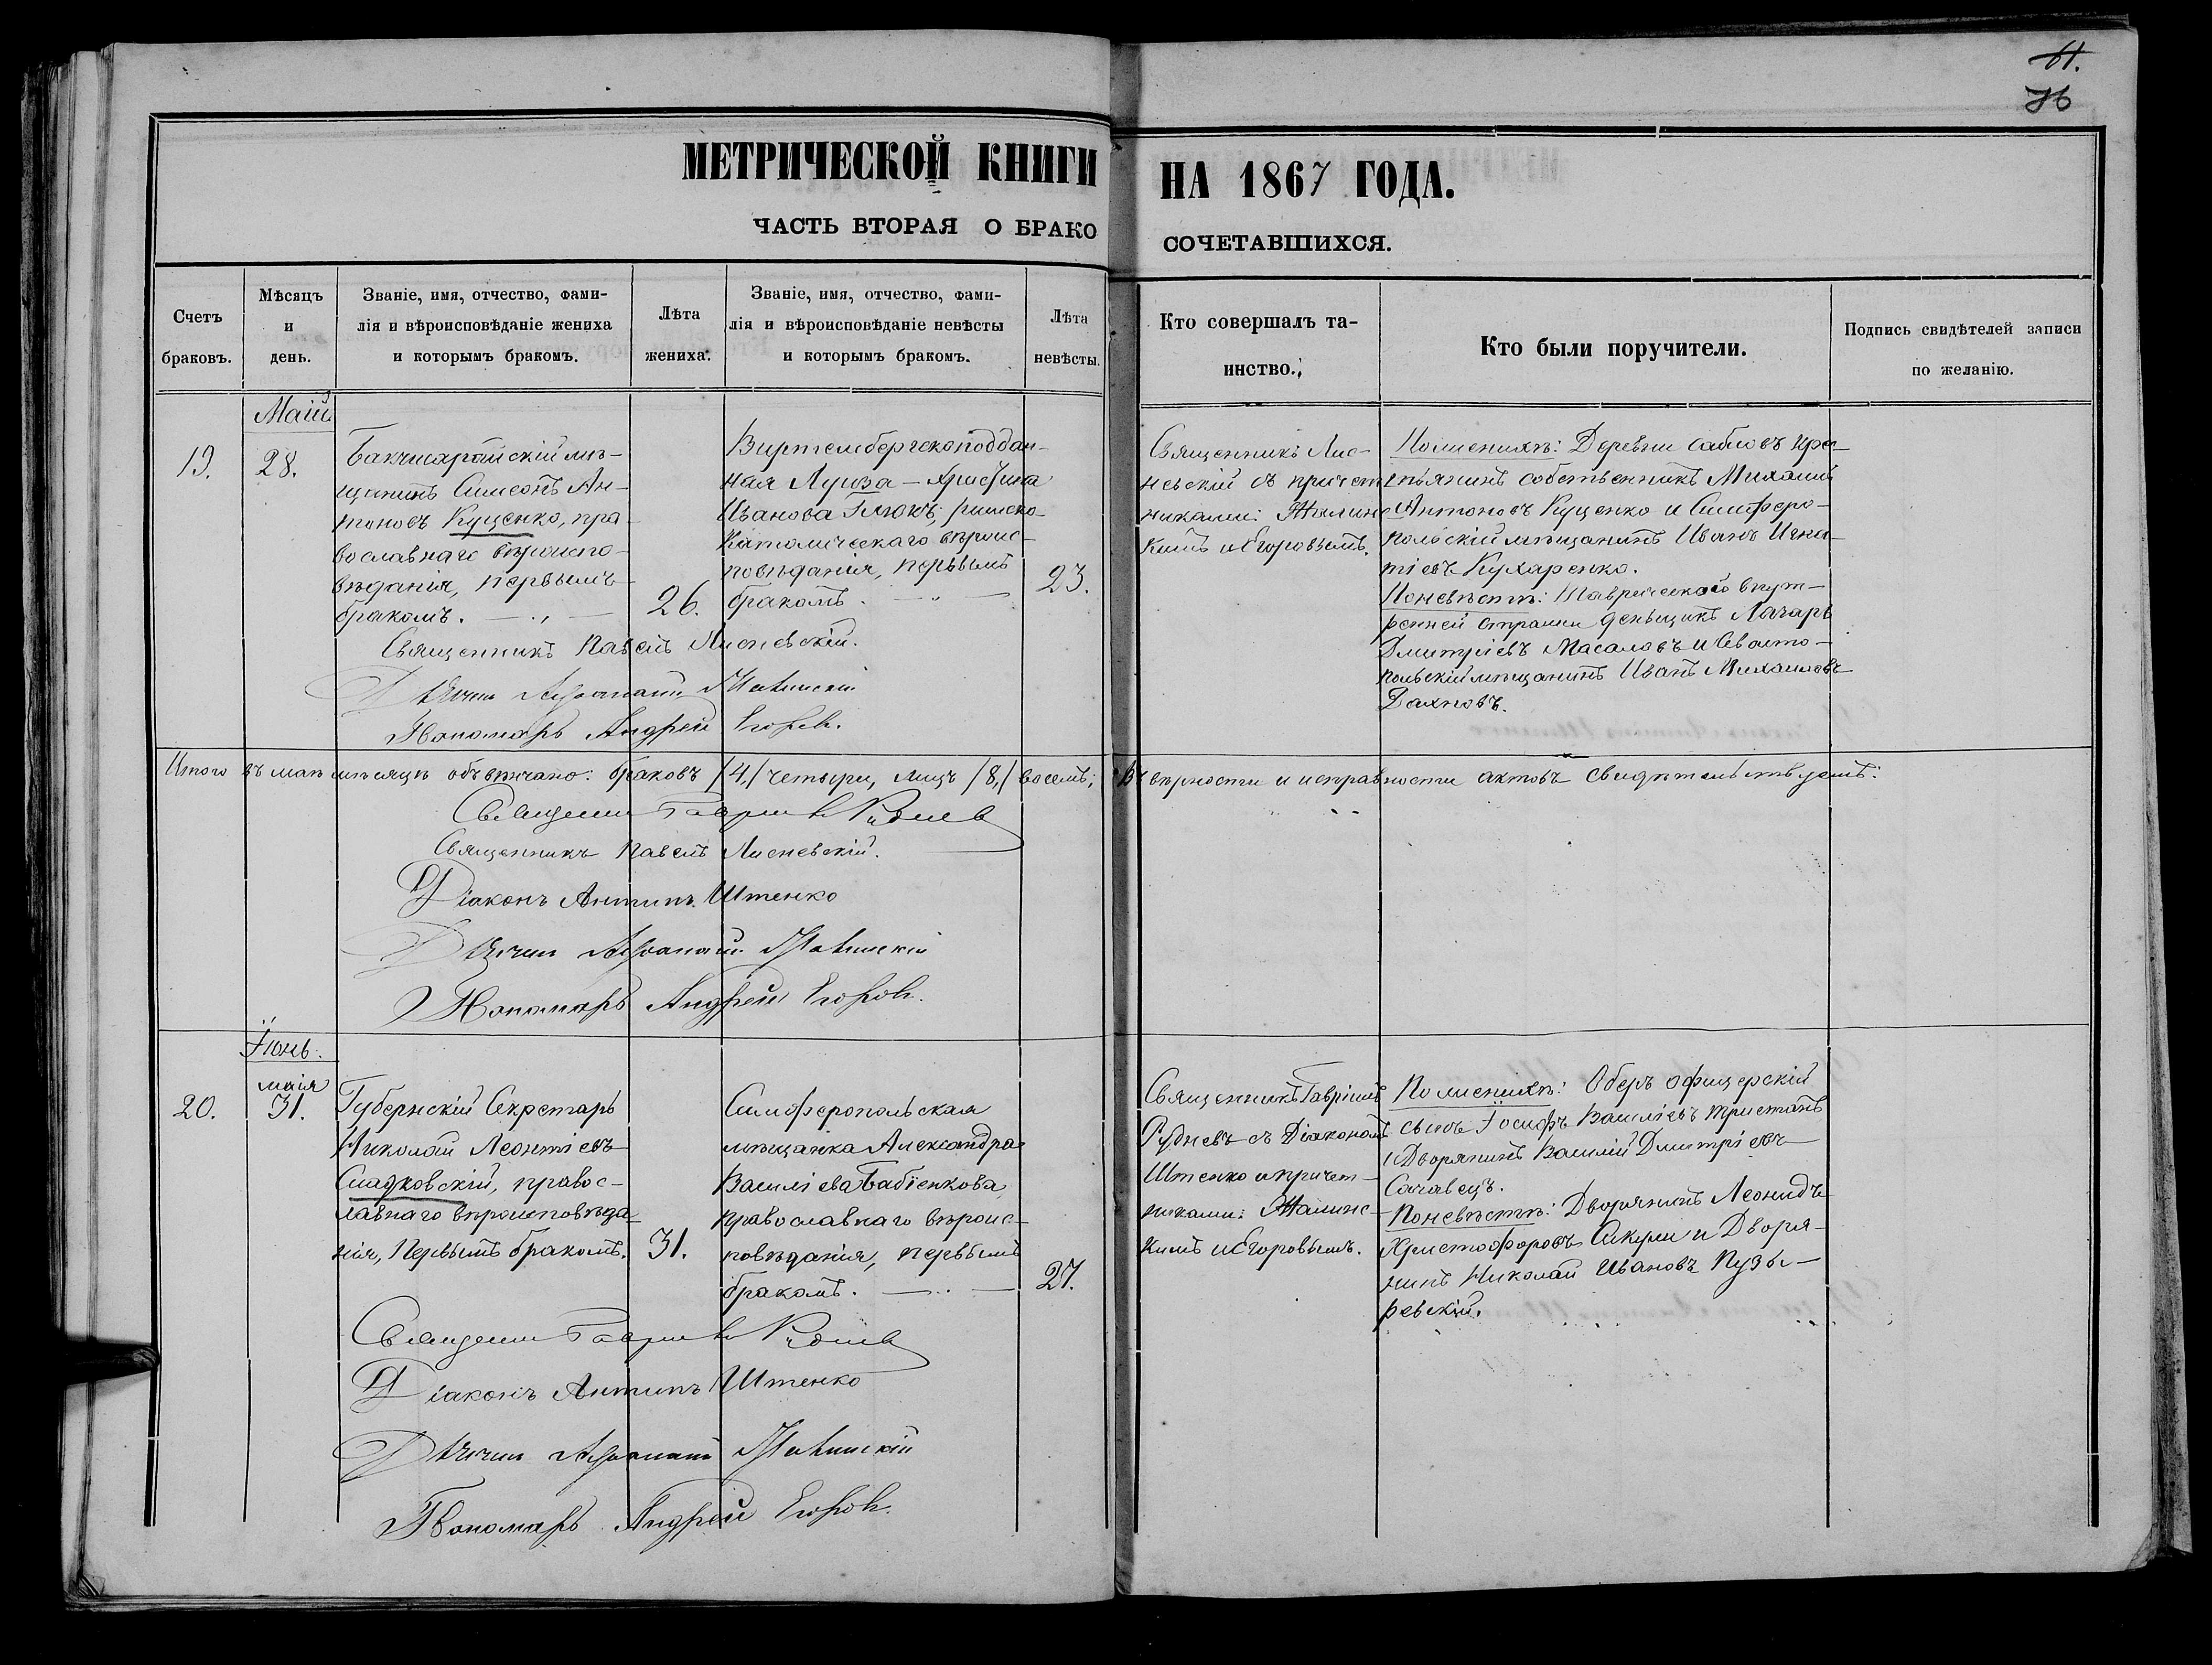 61.
76
МЕТРИЧЕСКОЙ КНИГИ НА 1867 ГОДА.
ЧАСТЬ ВТОРАЯ О БРАКОСОЧЕТАВШИХСЯ.
Счетъ браковъ.
Мѣсяцъ и день.
Званіе, имя, отчество, фами-
лія и вѣроисповѣданіе жениха
и которымъ бракомъ.
Лѣта жениха.
Званіе, имя, отчество, фами-
лія и вѣроисповѣданіе невѣсты
и которымъ бракомъ.
Лѣта невѣсты.
Кто совершалъ та-
инство.
Кто были поручители.
Подпись свидѣтелей записи
по желанію.
Маій
19.
28.
Бакчисарайскій мѣ-
щанинъ Симеонъ Ан-
тоновъ Куценко, пра-
вославнаго вѣроиспо-
вѣданія, первымъ
бракомъ.
26.
Виртембергскоподдан-
ная Луиза-Христина
Иванова Глюкъ, римско-
Католическаго вѣроис-
повѣданія, первымъ
бракомъ.
23.
Священникъ Лис-
невскій съ причет-
никами:
кимъ и Егоровымъ.
По женихѣ: Деревни Сабловъ кре-
стьянинъ собственникъ Михаилъ
Антоновъ Куценко и Симферо-
польскій мѣщанинъ Иванъ Игна-
тіевъ Кухаренко.
По невѣстѣ: Таврическаго внут-
ренней стражи деньщикъ Лазарь
Дмитріевъ Масаловъ и Севасто-
польскій мѣщанинъ Иванъ Михаиловъ
Дахновъ.
Священникъ Павелъ Лисневскій.
Дьячекъ
Пономарь Андрей Егоровъ.
Итого въ маѣ мѣсяцѣ обвѣнчано: браковъ /4./ четыри, лицъ /8./ восемь; Въ вѣрности и исправности актовъ свидѣтельствуемъ:
Священникъ Гавріилъ Рудневъ
Священникъ Павелъ Лисневскій.
Діаконъ Антипъ Штенко
Дьячекъ
Пономарь Андрей Егоровъ.
Іюнь.
20.
маія
31.
Губернскій Секретарь
Николай Леонтіевъ
Сладковскій, правос-
лавнаго вѣроисповѣда-
нія, Первымъ бракомъ.
31.
Симферопольская
мѣщанка Александра
Василіева Бабіенкова
православнаго вѣроис-
повѣданія, первымъ
бракомъ.
27.
Священникъ Гавріилъ
Рудневъ съ Діакономъ
Штенко и причет-
никами:
кимъ и Егоровымъ.
По женихѣ: Оберъ офицерскій
сынъ Іосифъ Василіевъ Тристанъ
и Дворянинъ Василій Дмитріевъ
По невѣстѣ: Дворянинъ Леонидъ
Христофоровъ и Дворя-
нинъ Николай Ивановъ Пузы-
ревскій.
Священникъ Гавріилъ Рудневъ
Діаконъ Антипъ Штенко
Дьячекъ
Пономарь Андрей Егоровъ.